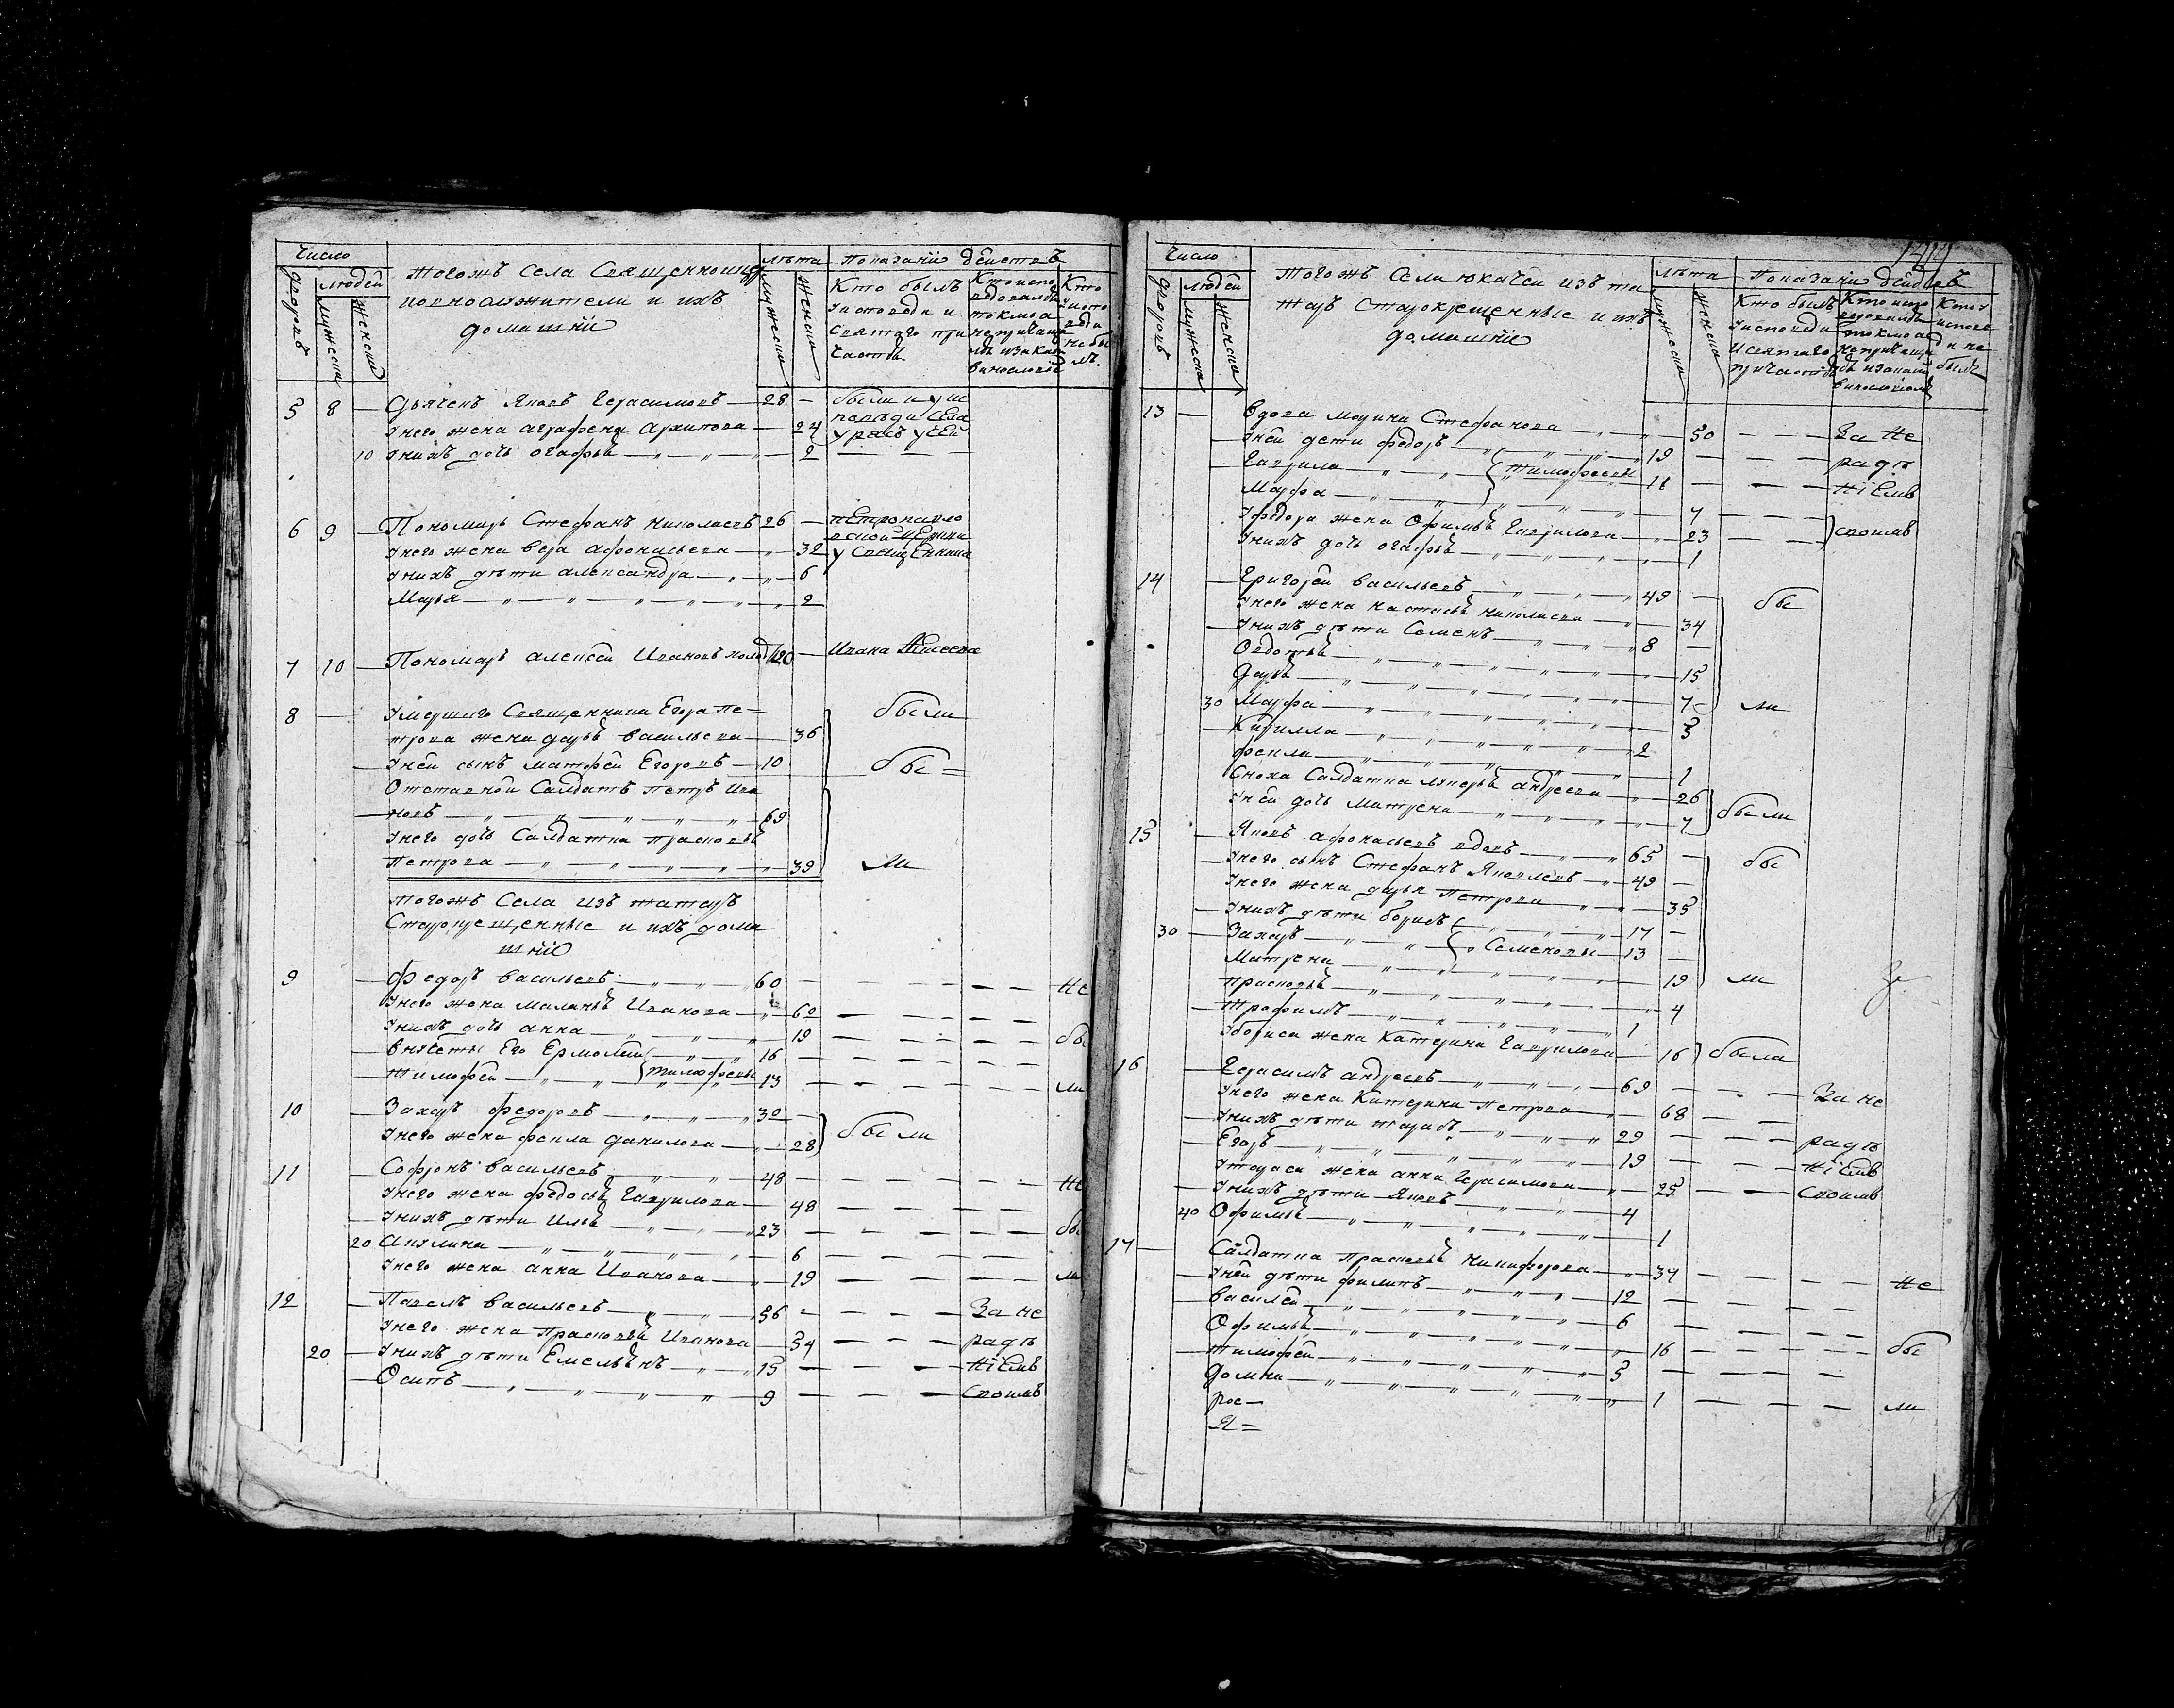 Число
дворовъ
людей
мужеска
женска
тогожъ села Священноиц
ковнослужители и ихъ
домашнїи
лѣта
мужеска
женска
Показанїи действъ
Кто былъ
у исповеди и
Святаго при
частїя
Кто испо
ведовался
токмо а
не причаща
лъ и за как
виносло
Кто
у испо
веди
не бы
лъ
5 8 — Дьяченъ Яковъ Герасимовъ — 28 — были и у ис
у него жена аграфена Архипова — 24 поведи села
10 у нихъ дочь огафья — " — " — 2
6 9 — Пономарь Стефанъ николаевъ 26 — петропавло
у него жена вера афонасьева — " — 32
у нихъ дѣти александра — " — " — 6 у священника
Марья — " — " — " — " — " — 2
7 10 — Пономарь алексей Ивановъ холос 20 — Ивана
8 — умершаго Священника Егора пе- были
трова жена дарья васильева — 36
у ней сынъ матфей Егоровъ — 10 бы =
Отставной Салдатъ петръ ива
новъ — " — " — " — " — " — 69
у него дочь Салдатка прасковья
петрова — " — " — " — " — " — 39 ли
тогожъ села изъ татаръ
старокрещенные и ихъ дома
шнїи
9 — Федоръ васильевъ — " — " — 60 — — — — — не
у него жена маланья Иванова — " — 62 — — — — —
у нихъ дочь анна — " — " — 19 — — — — — бы
внучеты его Ермолай — " — " — 16 — — — — —
тимофей — " — " тимофеевы 13 — — — — — ли
10 — Захаръ федоровъ — " — " — 30 —
у него жена фекла данилова — " — 28 были
11 — Софронъ васильевъ — " — " — 48 — — — — — не
у него жена федосья Гаврилова — 48 — — — — —
у нихъ дѣти илья — " — " — 23 — — — — — бы
20 Акулина — " — " — " — " — 6 — — — — —
у него жена анна Иванова — " — 19 — — — — — ли
12 — Павелъ васильевъ — " — " — 56 — — — — За не
у него жена Прасковья Иванова — 54 — — — радѣ
20 — у нихъ дѣти Емельянъ — " — 15 — — — нїемъ
— Осипъ — " — " — " — " — 9 — — — своимъ
Число
дворовъ
людей
мужеска
женска
тогожъ села юкачей изъ та
таръ старокрещенные и ихъ
домашнїи
лѣта
мужеска
женска
Показанїи действъ
Кто былъ
у исповеди
и святаго
причастїя
Кто испо
ведовался
токмо а
не причаща
лъ и за каким
винословїемъ
Кто у
испове
ди не
былъ
13 — вдова марина Стефанова — " — 50 — — — За не
у ней дети федоръ — " — " — 19 — — — — радѣ
Гаврила — " — " тимофеевы — 11 — — — нїемъ
Марфа — " — " — " — " — 7 — — —
у федора жена Офимья Гаврилова — " — 23 — — своимъ
у нихъ дочь огафья — " — " — " — " — 1
14 — Григорей васильевъ — " — " — " — 49 — бы
у него жена настасья николаева — " — 34
у нихъ дѣти Семенъ — " — " — " — 8 —
Овдотья — " — " — " — " — " — 15
Дарья — " — " — " — " — " — 7
30 Марфа — " — " — " — " — " — 5 ли
Кирилла — " — " — " — " — 2
фекла — " — " — " — " — " — 1
Сноха Салдатка андреева — " — 26
у ней дочь матрена — " — " — " — 7 были
15 — Яковъ афонасьевъ вдовъ — " — 65 — бы
у него сынъ Стефанъ Яковлевъ — " — 49 —
у него жена дарья Петрова — " — " — 35
у нихъ дѣти борисъ — " — " — " — 17 —
30 — Захаръ — " — " — Семеновы — 13 —
Матрена — " — " — " — " — 19 ли
прасковья — " — " — " — " — 4
трофимъ — " — " — " — " — 1
у бориса жена Катерина Гаврилова — 16 была
16 — Герасимъ андреевъ — " — " — 69 — — — За не
у него жена Катерина Петрова — " — 68 — —
у нихъ дѣти тарасъ — " — " — " 29 — — — радѣ
Егоръ — " — " — " — " — " — 19 — — — нїемъ
у тараса жена анна Герасимова — " — 25 — — своимъ
у нихъ дѣти Яковъ — " — " — 4
40 Офимья — " — " — " — " — " — 1
17 — Салдатка прасковья никифорова — " — 34 — — — — не
у ней дѣти филипъ — " — " — " — 12 — — — —
василей — " — " — " — " — " — 6 — — — —
Офимья — " — " — " — " — " — 16 — — — — бы
тимофей — " — " — " — " — " — 5 — — — —
домна — " — " — " — " — " — 1 — — — — ли
рос —
Я =